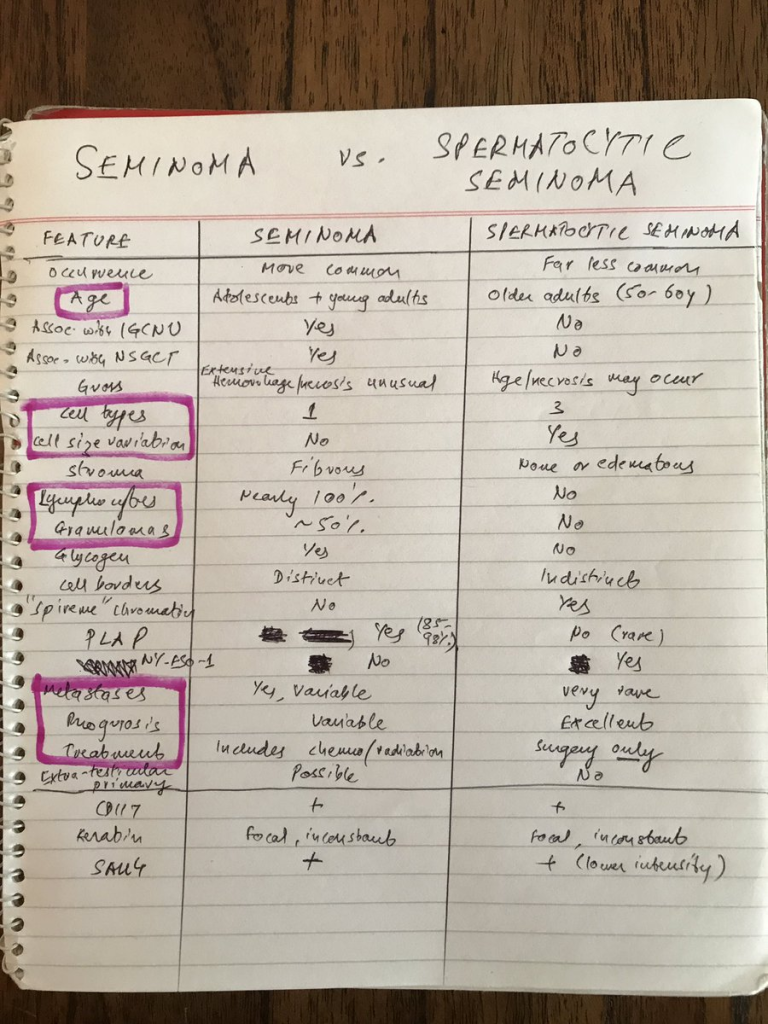 SEMINOMA vs. SPERMATOCYTIC
SEMINOMA
FEATURE SEMINOMA SPERMATOCYTIC SEMINOMA
Occurrence More common Far less common
Age Adolescents + young adults Older adults (50-60y)
Assoc. with IGCNU Yes No
Assoc. with NSGCT Yes No
Gross Extensive Hemorrhage/necrosis unusual Hge/necrosis may occur
Cell types 1 3
Cell size variation No Yes
Stroma Fibrous None or edematous
Lymphocytes Nearly 100% No
Granulomas ~50% No
Glycogen Yes No
Cell borders Distinct Indistinct
"Spireme" chromatin No Yes
PLAP Yes (85-98%) No (rare)
NY-ESO-1 No Yes
Metastases Yes, Variable very rare
Prognosis Variable Excellent
Treatment Includes chemo/radiation Surgery only
Extra-testicular primary Possible No
CD117 + +
Keratin Focal, inconstant Focal, inconstant
SALL4 + + (lower intensity)